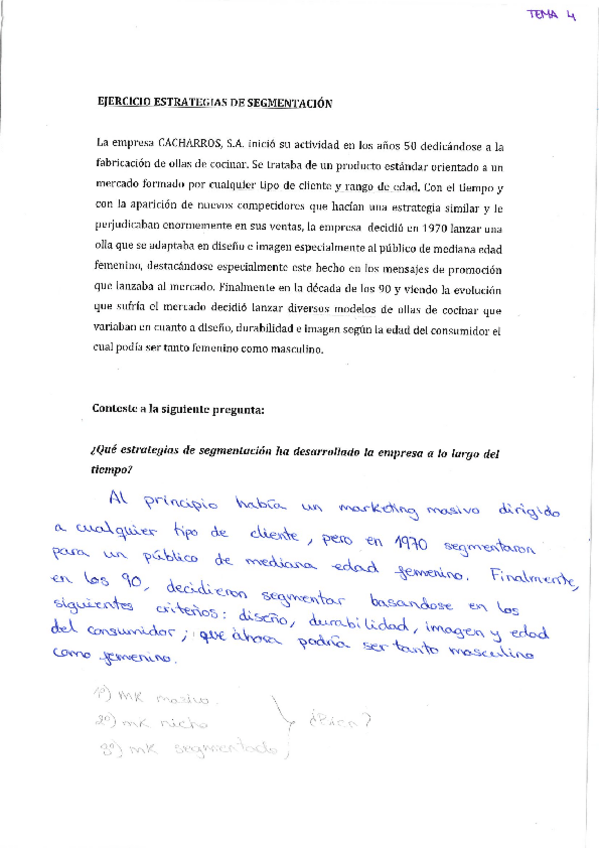 TEMA 4
EJERCICIO ESTRATEGIAS DE SEGMENTACIÓN
La empresa CACHARROS, S.A. inició su actividad en los años 50 dedicándose a la
fabricación de ollas de cocinar. Se trataba de un producto estándar orientado a un
mercado formado por cualquier tipo de cliente y rango de edad. Con el tiempo y
con la aparición de nuevos competidores que hacían una estrategia similar y le
perjudicaban enormemente en sus ventas, la empresa decidió en 1970 lanzar una
olla que se adaptaba en diseño e imagen especialmente al público de mediana edad
femenino, destacándose especialmente este hecho en los mensajes de promoción
que lanzaba al mercado. Finalmente en la década de los 90 y viendo la evolución
que sufría el mercado decidió lanzar diversos modelos de ollas de cocinar que
variaban en cuanto a diseño, durabilidad e imagen según la edad del consumidor el
cual podía ser tanto femenino como masculino.
Conteste a la siguiente pregunta:
¿Qué estrategias de segmentación ha desarrollado la empresa a lo largo del
tiempo?
Al principio había un marketing masivo dirigido
a cualquier tipo de cliente, pero en 1970 segmentaron
para un público de mediana edad femenino. Finalmente,
en los 90, decidieron segmentar basandose en los
siguientes criterios: diseño, durabilidad, imagen y edad
del consumidor; que ahora podría ser tanto masculino
como femenino.
1º) MK masivo.
2º) MK nicho
3º) MK segmentado
¿Bien?